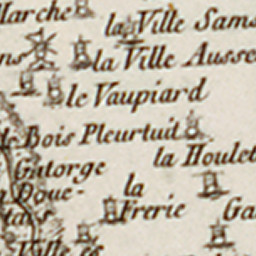 Marche
la Ville Sams
ns
la Ville Ausse
le Vaupiard
de Bois Pleurtuit
la Houlet
Gatorge
la
a Doue-
Frerie
Ga
tais
Ville es